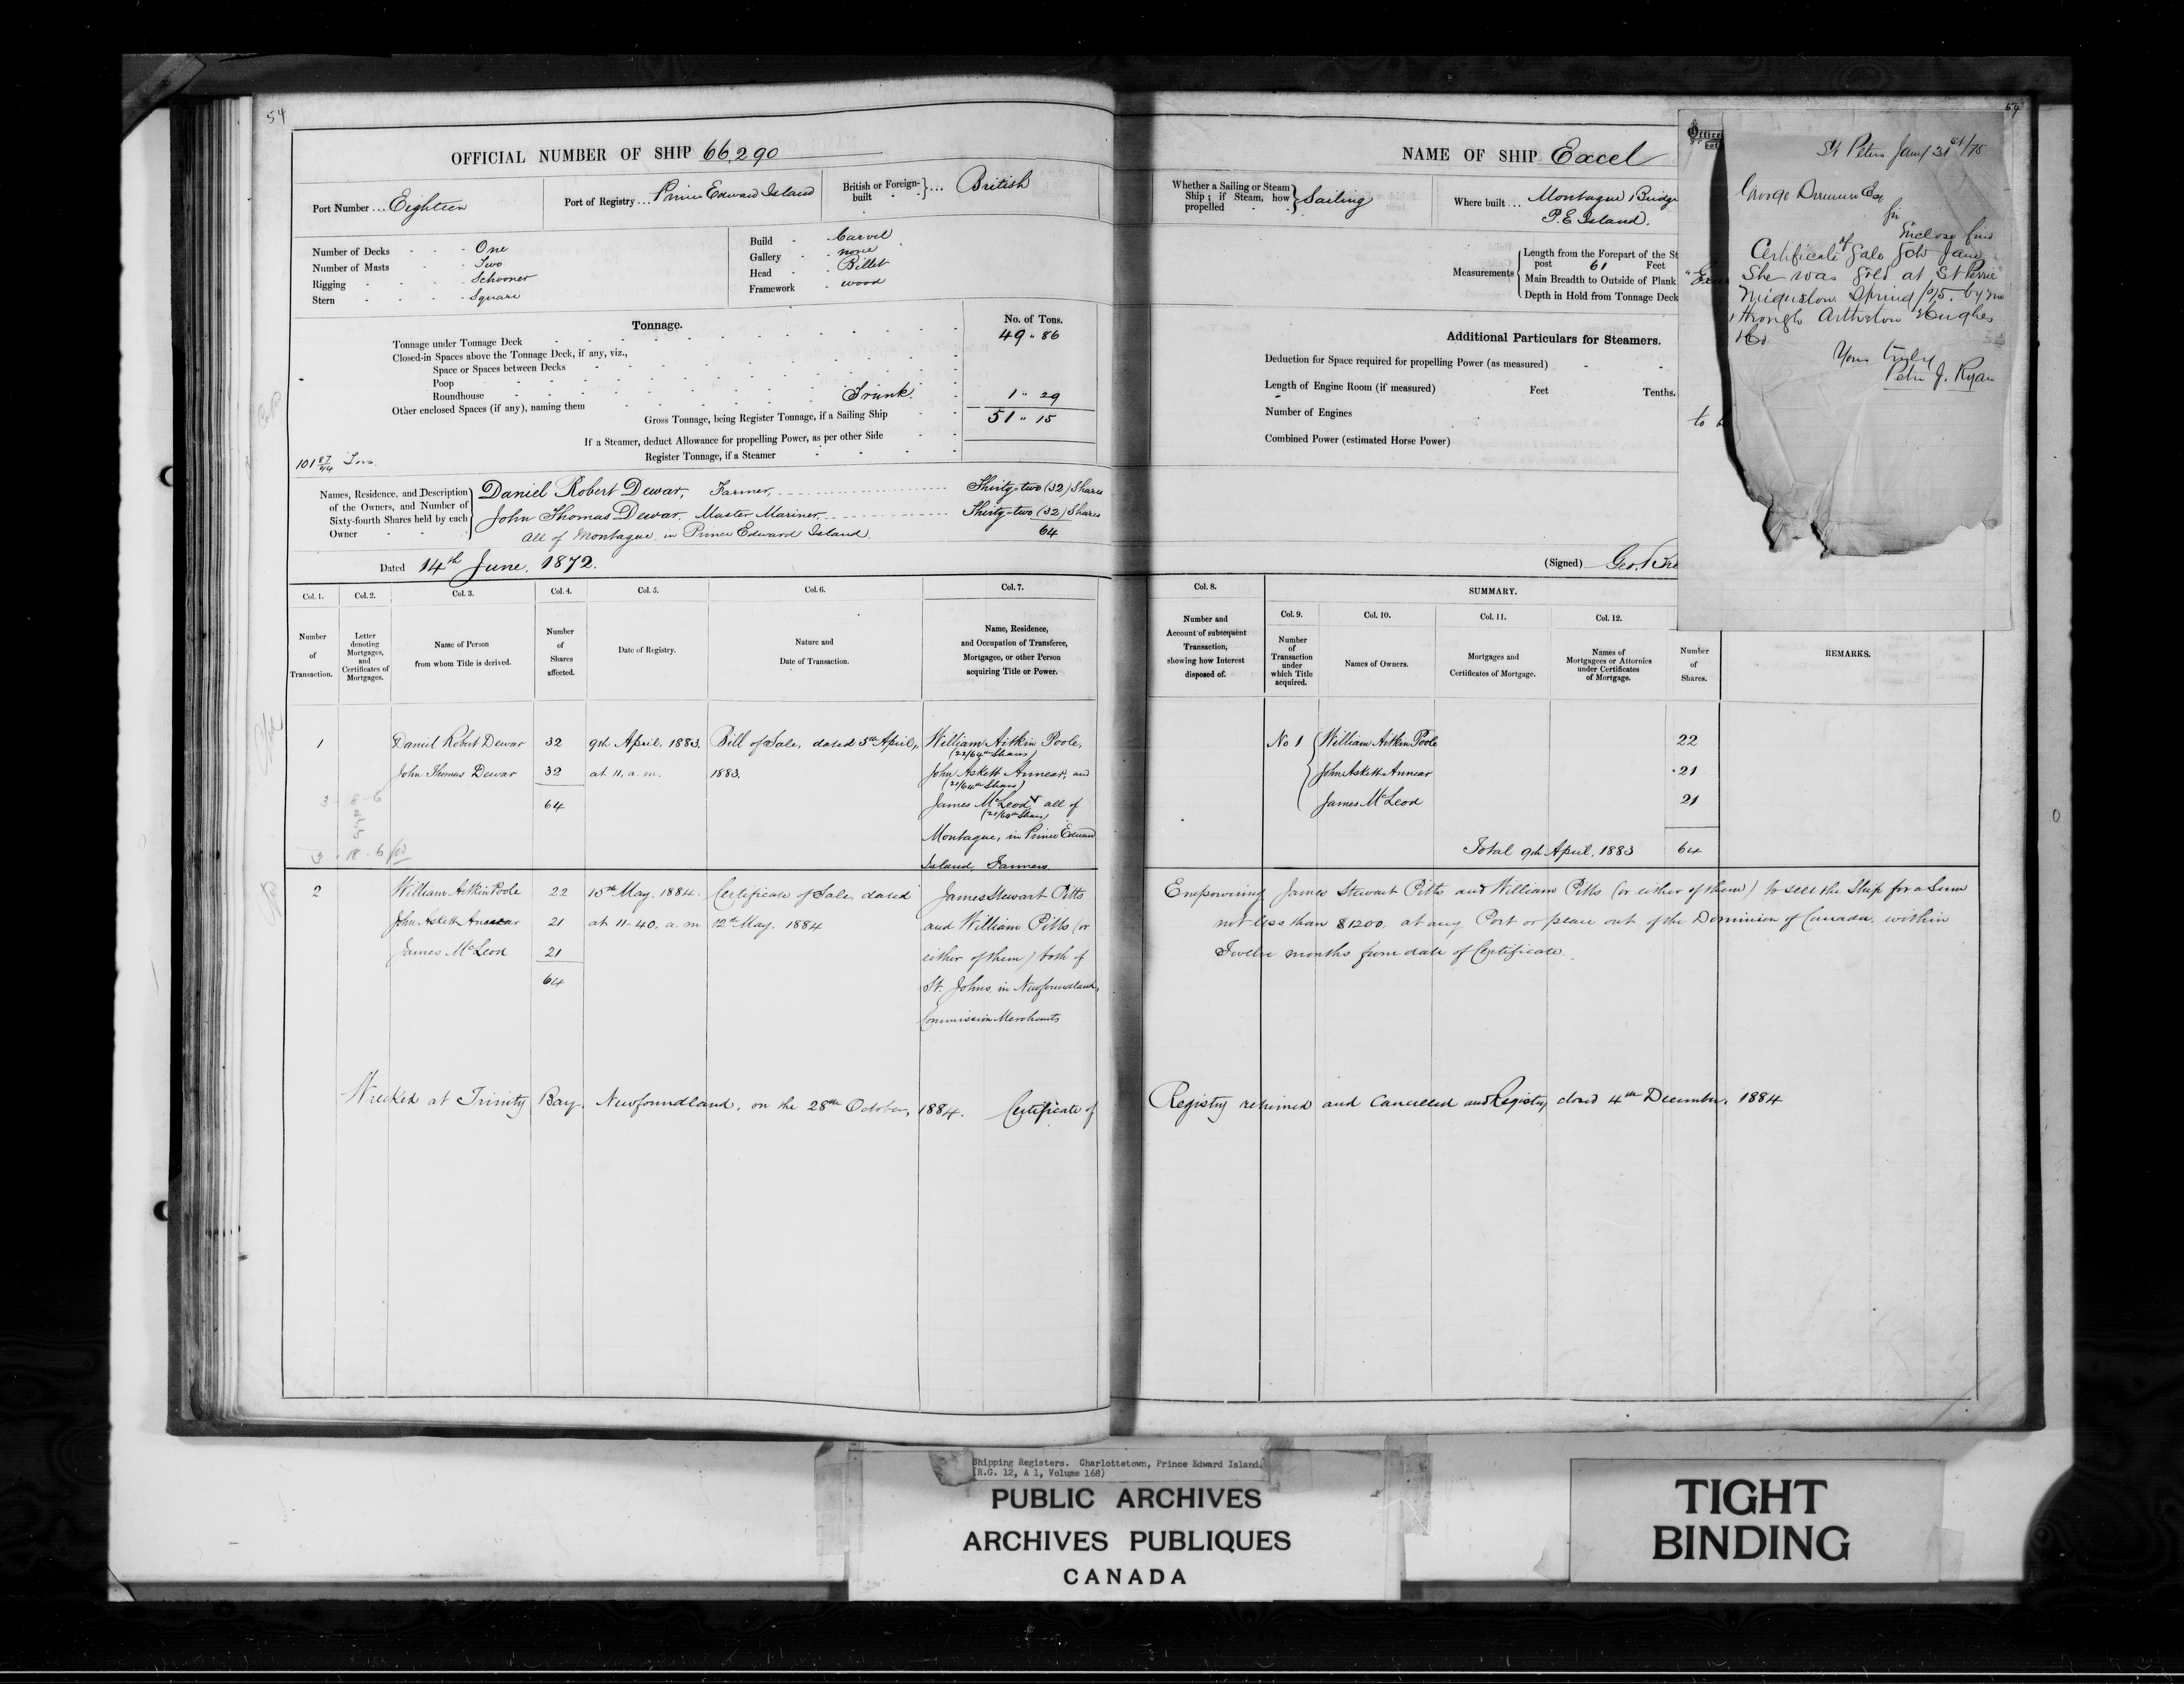 54
OFFICIAL NUMBER OF SHIP 66,290
Port Number ... Eighteen
Port of Registry ... Prince Edward Island
British or Foreign-built ... British
Number of Decks One
Number of Masts Two
Rigging Schooner
Stern Square
Build Carvel
Gallery none
Head Billet
Framework wood
Tonnage.
No. of Tons.
Tonnage under Tonnage Deck 49 . 86
Closed-in Spaces above the Tonnage Deck, if any, viz.,
Space or Spaces between Decks
Poop
Roundhouse
Other enclosed Spaces (if any), naming them Trunk 1 . 29
Gross Tonnage, being Register Tonnage, if a Sailing Ship 51 . 15
If a Steamer, deduct Allowance for propelling Power, as per other Side
Register Tonnage, if a Steamer
101 87/94 Tons
Names, Residence, and Description of the Owners, and Number of Sixty-fourth Shares held by each Owner
Daniel Robert Dewar, Farmer, Thirty-two (32) Shares
John Thomas Dewar, Master Mariner, Thirty-two (32) Shares
All of Montague, in Prince Edward Island. 64
Dated 14th June, 1872.
Col. 1. Col. 2. Col. 3. Col. 4. Col. 5. Col. 6. Col. 7.
Number of Transaction.
Letter denoting Mortgages, and Certificates of Mortgages.
Name of Person from whom Title is derived.
Number of Shares affected.
Date of Registry.
Nature and Date of Transaction.
Name, Residence, and Occupation of Transferee, Mortgagee, or other Person acquiring Title or Power.
1 Daniel Robert Dewar 32 9th April, 1883. Bill of Sale, dated 5th April, William Aitkin Poole,
(22/64th Shares)
John Thomas Dewar 32 at 11, a.m. 1883. John Askett Annear, and
(21/64th Shares)
64 James McLeod all of
(21/64th Shares)
Montague, in Prince Edward
Island, Farmers
3 18 . 6
2 William Aitkin Poole 22 15th May, 1884. Certificate of Sale, dated James Stewart Pitts
John Askett Annear 21 at 11-40. a.m 12th May, 1884 and William Pitts (or
James McLeod 21 either of them) both of
64 St. Johns, in Newfoundland,
Commission Merchants
Wrecked at Trinity Bay, Newfoundland, on the 28th October, 1884. Certificate of
NAME OF SHIP Excel
Whether a Sailing or Steam Ship; if Steam, how propelled Sailing
Where built ... Montague Bridge
P.E Island.
Measurements
Length from the Forepart of the St
post 61 Feet
Main Breadth to Outside of Plank
Depth in Hold from Tonnage Deck
Additional Particulars for Steamers.
Deduction for Space required for propelling Power (as measured)
Length of Engine Room (if measured) Feet Tenths.
Number of Engines
Combined Power (estimated Horse Power)
(Signed) Geo.
Office
to
St Peters Jany 31st/75
George Esq
Sir
Enclose find
Certificate of Sale Schr Jane
She was Sold at St Pierre
Miquelon Spring /75. by me
through Hughes
& Co
Yours truly
Peter J. Ryan
Col. 8.
SUMMARY.
Col. 9. Col. 10. Col. 11. Col. 12.
Number and Account of subsequent Transaction, showing how Interest disposed of.
Number of Transaction under which Title acquired.
Names of Owners.
Mortgages and Certificates of Mortgage.
Names of Mortgagees or Attornies under Certificates of Mortgage.
Number of Shares.
REMARKS.
No 1 William Aitkin Poole 22
John Askett Annear 21
James McLeod 21
Total 9th April, 1883 64
Empowering James Stewart Pitts and William Pitts (or either of them) to sell the Ship for a Sum
not less than $1200, at any Port or place out of the Dominion of Canada, within
Twelve months from date of Certificate.
Registry returned and Cancelled and Registry closed 4th December, 1884
Shipping Registers. Charlottetown, Prince Edward Island.
(R.G. 12, A 1, Volume 168)
PUBLIC ARCHIVES
ARCHIVES PUBLIQUES
CANADA
TIGHT
BINDING